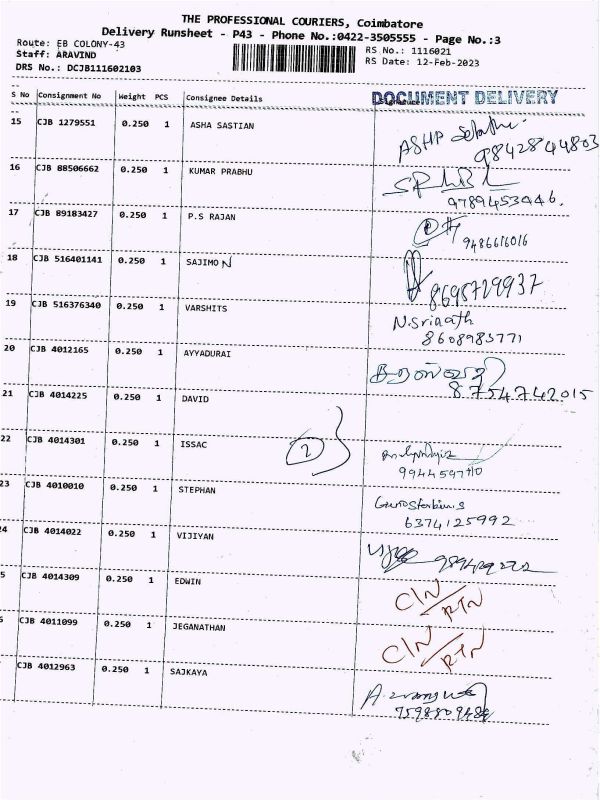 THE PROFESSIONAL COURIERS, Coimbatore
Delivery Runsheet - P43 - Phone No.:0422-3505555 - Page No.:3
Route: EB COLONY-43
RS No.: 1116021
Staff: ARAVIND
RS Date: 12-Feb-2023
DRS No.: DCJB111602103
S No Consignment No Weight PCS Consignee Details DOCUMENT DELIVERY
15 CJB 1279551 0.250 1 ASHA SASTIAN
9842844803
16 CJB 88506662 0.250 1 KUMAR PRABHU
9789453446.
17 CJB 89183427 0.250 1 P.S RAJAN
9486616016
18 CJB 516401141 0.250 1 SAJIMON
8695729937
19 CJB 516376340 0.250 1 VARSHITS N.Srinath
8608983771
20 CJB 4012165 0.250 1 AYYADURAI
8754742015
21 CJB 4014225 0.250 1 DAVID
22 CJB 4014301 0.250 1 ISSAC 2
23 CJB 4010010 0.250 1 STEPHAN
6374125992
24 CJB 4014022 0.250 1 VIJIYAN
5 CJB 4014309 0.250 1 EDWIN CIN/RTN
6 CJB 4011099 0.250 1 JEGANATHAN CIN/RTN
CJB 4012963 0.250 1 SAJKAYA